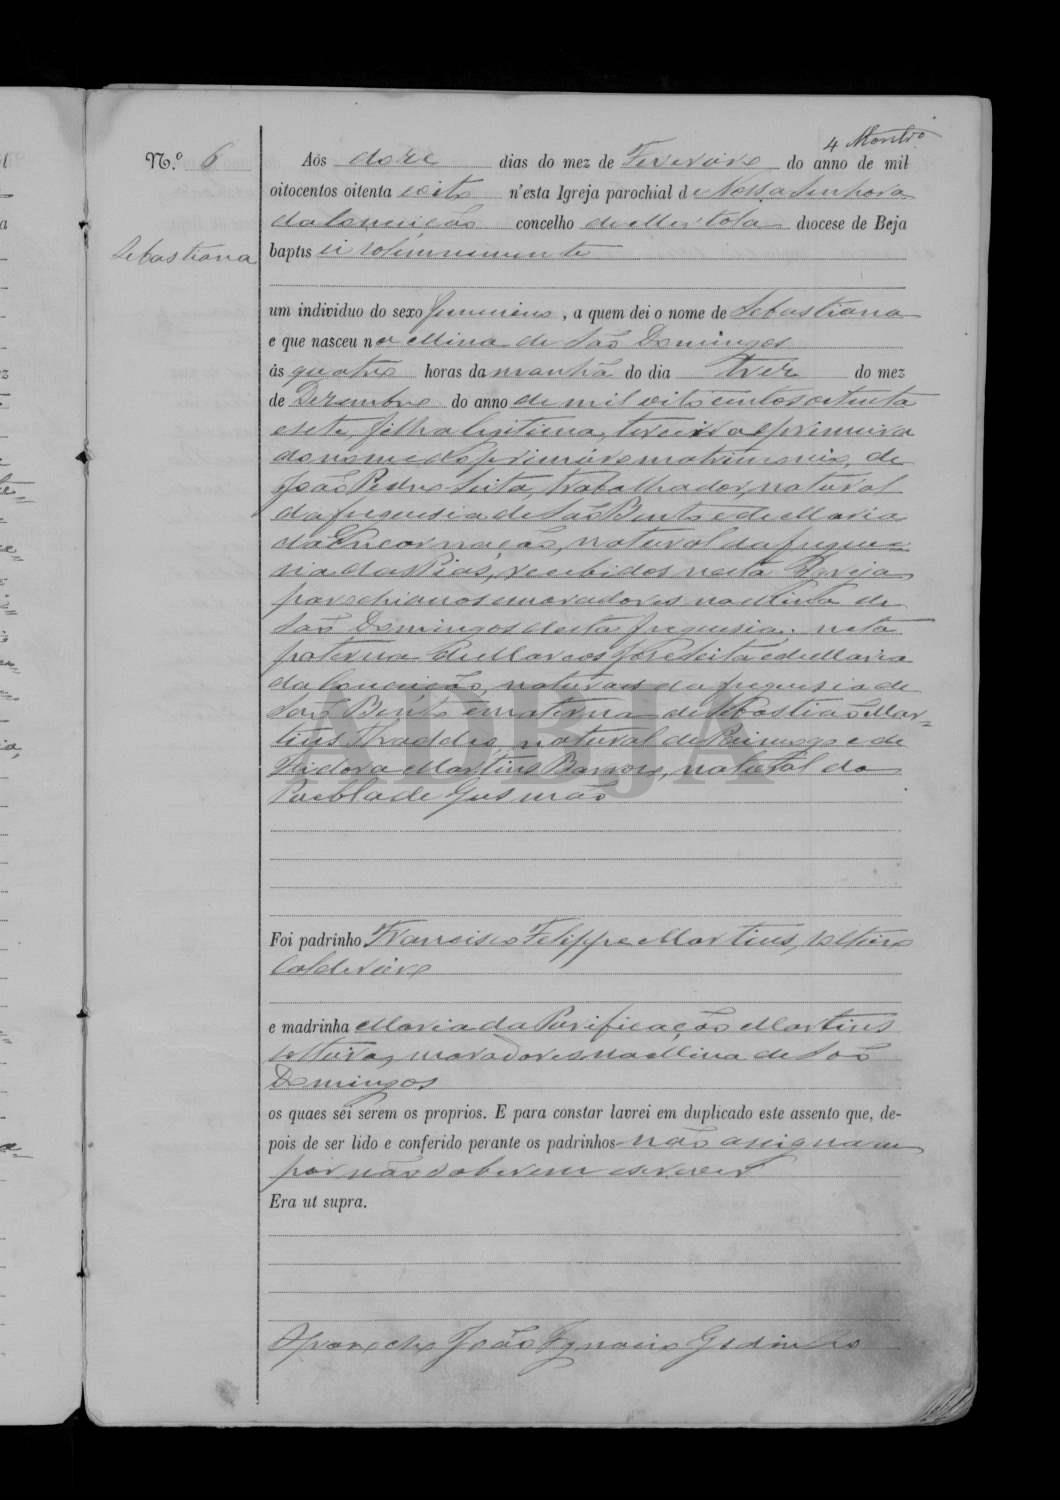 4
N.º 6
Aos doze dias do mez de Fevereiro do anno de mil
oitocentos oitenta e oito n'esta Igreja parochial de Nossa Senhora
da Conceição concelho de Mertola diocese de Beja
Sebastiana
baptisei solemnemente
um individuo do sexo femenino, a quem dei o nome de Sebastiana
e que nasceu na Mina de São Domingos
ás quatro horas da manhã do dia trez do mez
de Dezembro do anno de mil oito centos oitenta
e sete, filha legitima, terceira e primeira
do nome do primeiro matrimonio, de
João Pedro Leita, trabalhador, natural
da freguesia de São Bento e de Maria
da Encarnação, natural da fregue=
sia das Pias, recebidos nesta Igreja
parochianos e moradores na Mina de
São Domingos desta freguesia; neta
paterna de Marcos José Leita e de Maria
da Conceição, naturaes da freguesia de
São Bento e materna de Sebastião Mar=
tins natural de e de
Izidora Martins Barroso, natural da
Puebla de Gusmão
Foi padrinho Francisco Felippe Martins, solteiro
Caldereiro
e madrinha Maria da Purificação Martins
solteira, moradores na Mina de São
Domingos
os quaes sei serem os proprios. E para constar lavrei em duplicado este assento que, de-
pois de ser lido e conferido perante os padrinhos não assignaram
por não saberem escrever
Era ut supra.
O parocho João Ignacio Godinho
ADBJA